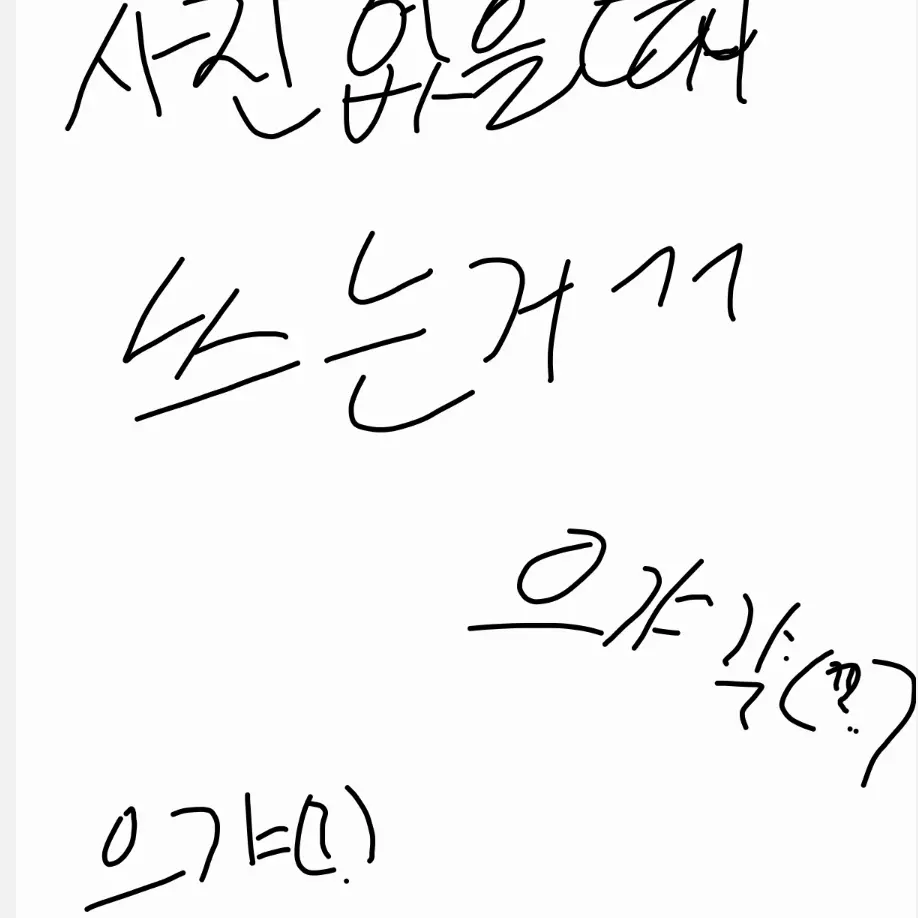 사진 없을 때
쓰는거 ㄱㄱ
으갸각(??)
으갸(!)